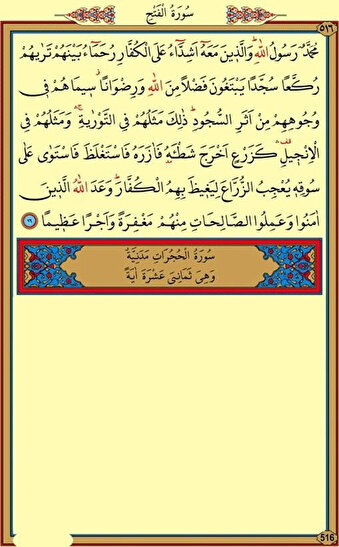 سُورَةُ الْفَتْحِ
٥١٦
مُحَمَّدٌ رَسُولُ اللّٰهِۜ وَالَّذ۪ينَ مَعَهُٓ اَشِدَّٓاءُ عَلَى الْكُفَّارِ رُحَمَٓاءُ بَيْنَهُمْ تَرٰيهُمْ
رُكَّعًا سُجَّدًا يَبْتَغُونَ فَضْلًا مِنَ اللّٰهِ وَرِضْوَانًاۘ س۪يمَاهُمْ ف۪ي
وُجُوهِهِمْ مِنْ اَثَرِ السُّجُودِۜ ذٰلِكَ مَثَلُهُمْ فِي التَّوْرٰيةِۚۛ وَمَثَلُهُمْ فِي
الْاِنْج۪يلِ۠ۛ كَزَرْعٍ اَخْرَجَ شَطْـَٔهُ فَاٰزَرَهُ فَاسْتَغْلَظَ فَاسْتَوٰى عَلٰى
سُوقِه۪ يُعْجِبُ الزُّرَّاعَ لِيَغ۪يظَ بِهِمُ الْكُفَّارَۜ وَعَدَ اللّٰهُ الَّذ۪ينَ
اٰمَنُوا وَعَمِلُوا الصَّالِحَاتِ مِنْهُمْ مَغْفِرَةً وَاَجْرًا عَظ۪يمًا ٢٩
سُورَةُ الْحُجُرَاتِ مَدَنِيَّةٌ
وَهِيَ ثَمَانِيَ عَشْرَةَ اٰيَةً
516